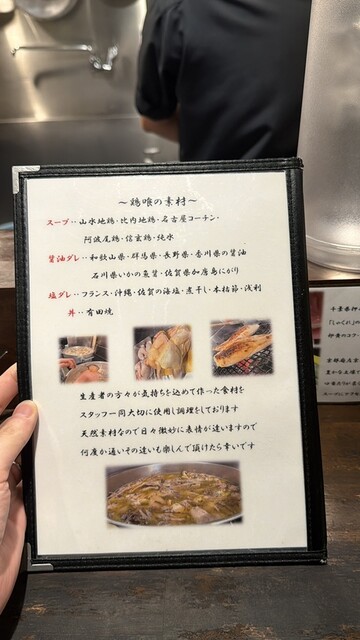 〜鶏喰の素材〜
スープ‥山水地鶏・比内地鶏・名古屋コーチン・
阿波尾鶏・信玄鶏・純水
醤油ダレ‥和歌山県・群馬県・長野県・香川県の醤油
石川県いかの魚醤・佐賀県加唐島にがり
塩ダレ‥フランス・沖縄・佐賀の海塩・煮干し・本枯節・浅利
丼‥有田焼
生産者の方々が気持ちを込めて作った食材を
スタッフ一同大切に使用し調理をしております
天然素材なので日々微妙に表情が違いますので
何度か通いその違いも楽しんで頂けたら幸いです